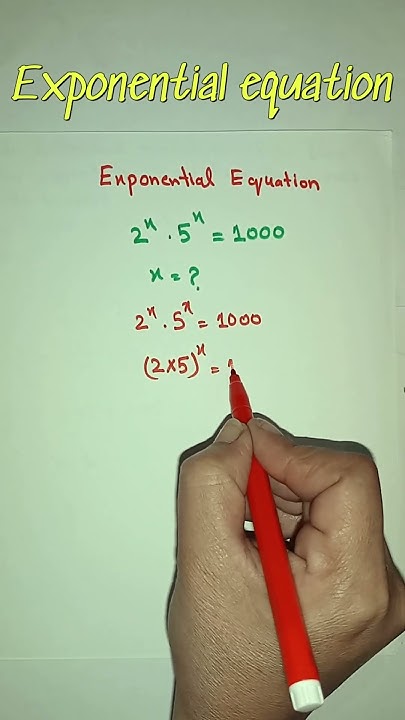 Exponential equation
Exponential Equation
2^x . 5^x = 1000
x = ?
2^x . 5^x = 1000
(2×5)^x = 1